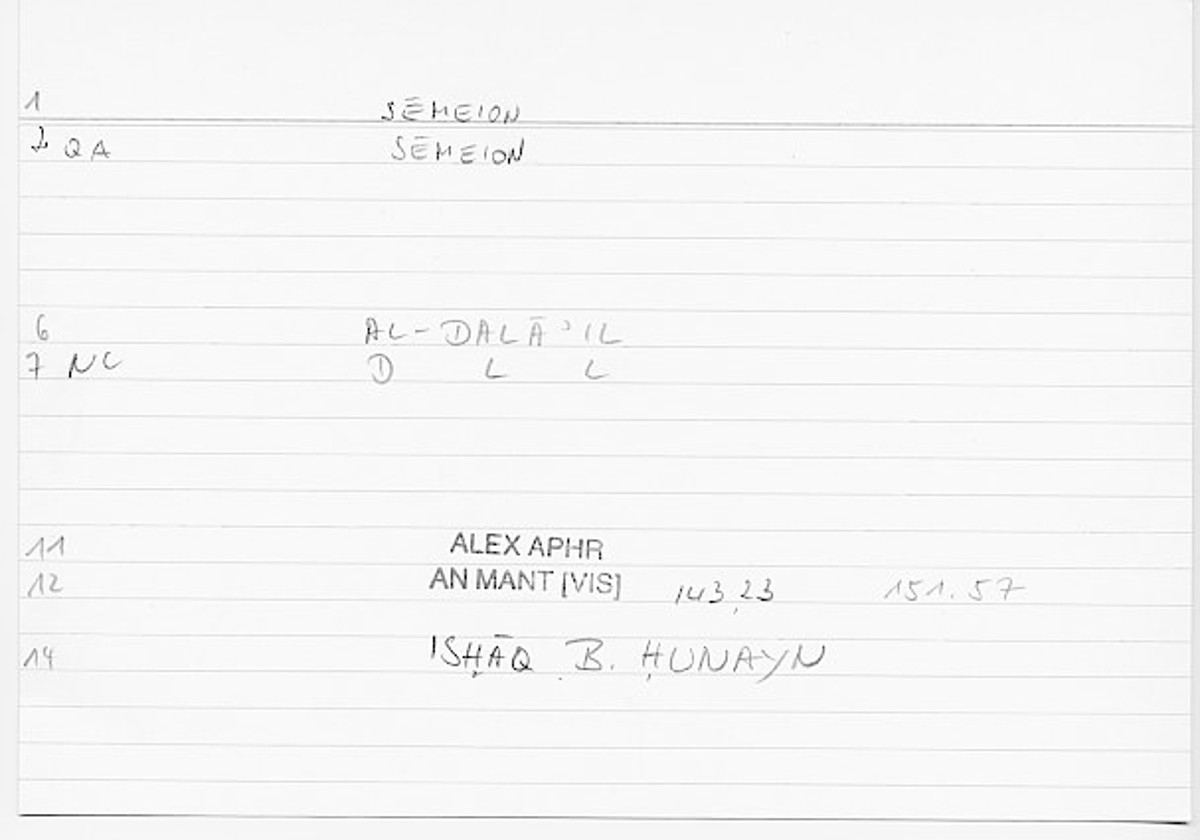 1 SĒMEION
2 QA SĒMEION
6 AL-DALĀʾIL
7 NC D L L
11 ALEX APHR
12 AN MANT [VIS] 143,23 151.57
14 ISḤĀQ B. ḤUNAYN